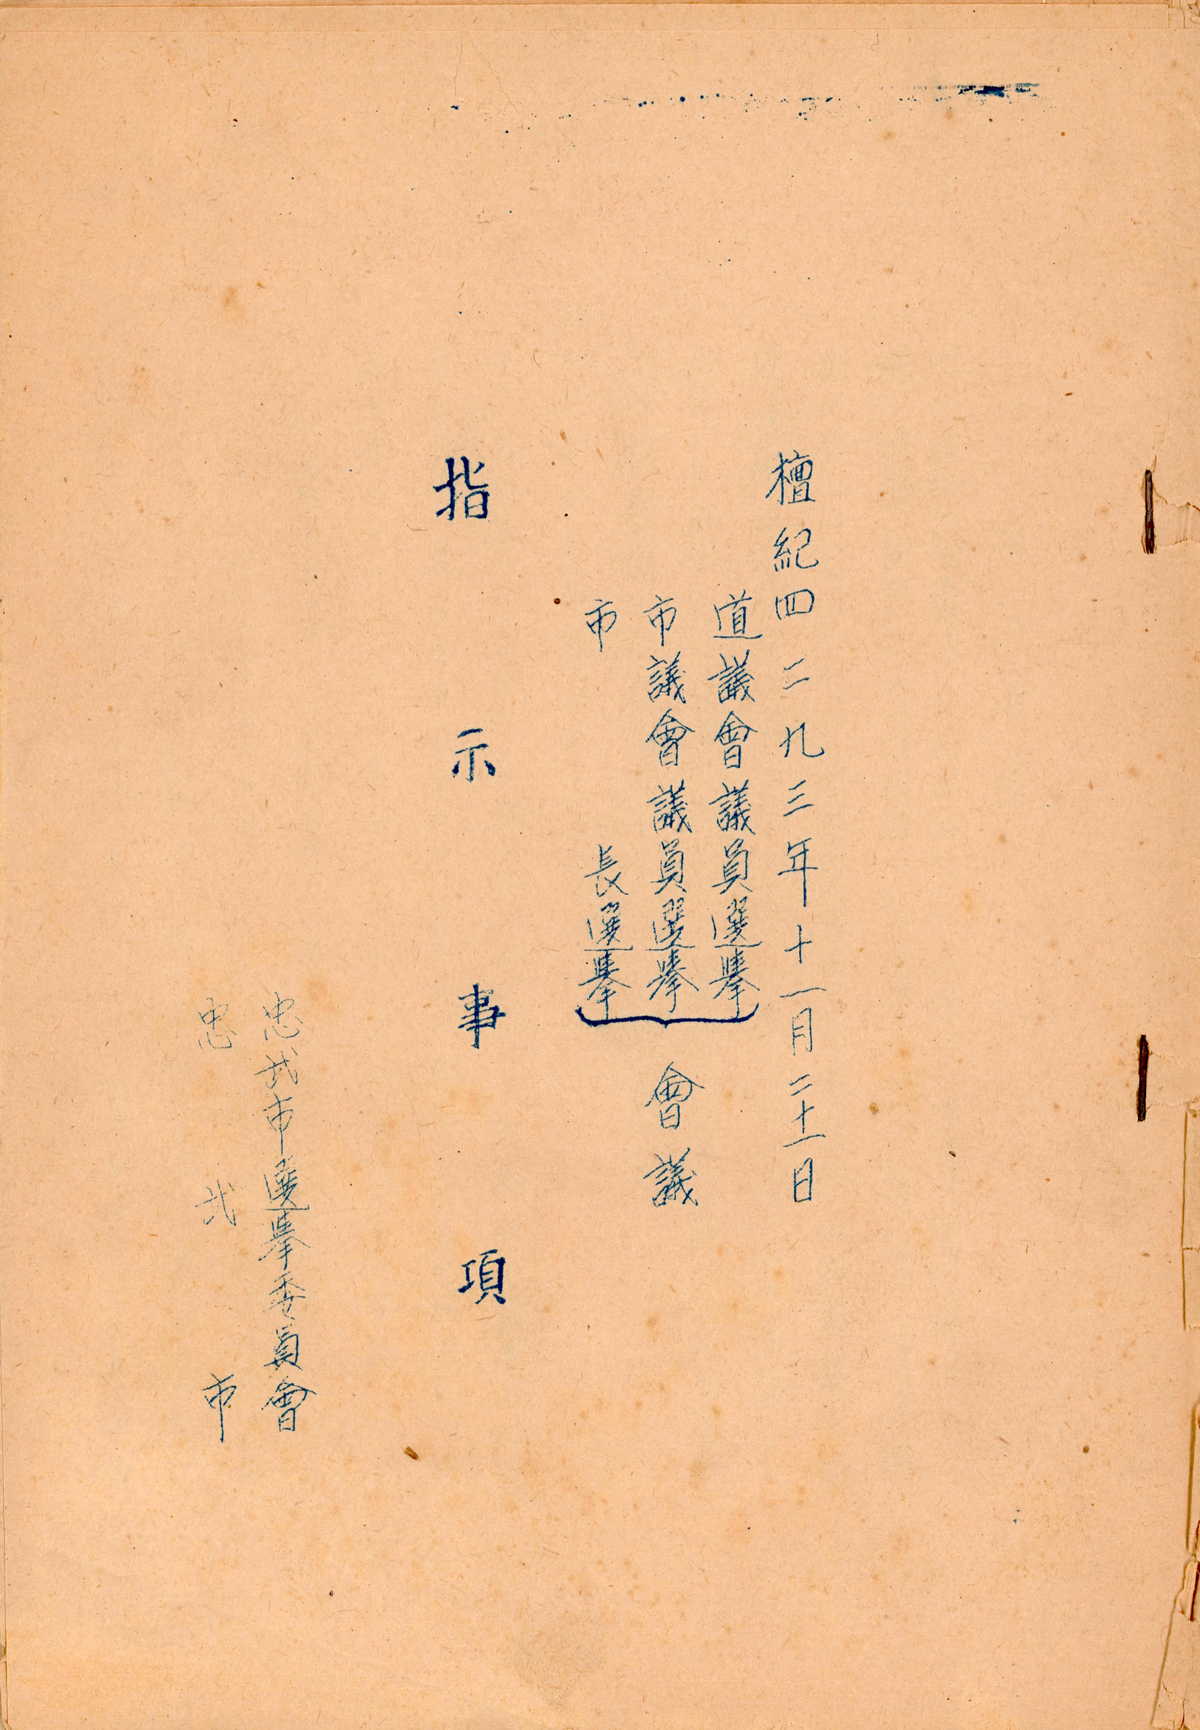 檀紀四二九三年十一月二十一日
道議會議員選擧
市議會議員選擧
市長選擧
會議
指示事項
忠武市選擧委員會
忠武市